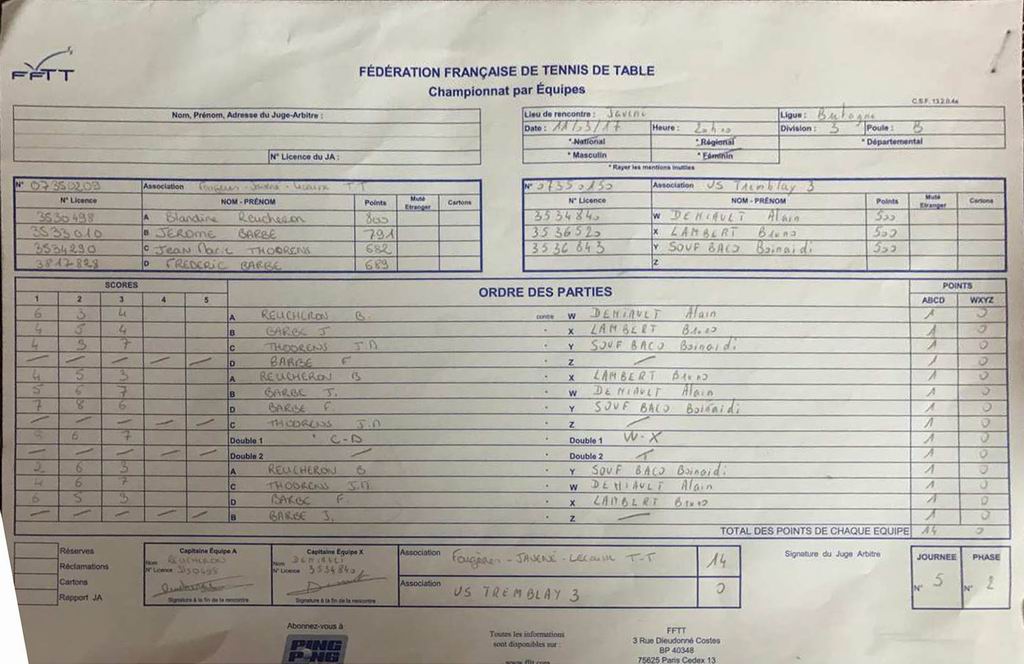 FFTT
FÉDÉRATION FRANÇAISE DE TENNIS DE TABLE
Championnat par Équipes
C.S.F. 13.2.0.4a
Nom, Prénom, Adresse du Juge-Arbitre :
N° Licence du JA :
Lieu de rencontre : Javené Ligue : Bretagne
Date : 11/3/17 Heure : 20h00 Division : 3 Poule : B
* National * Régional * Départemental
* Masculin * Féminin
* Rayer les mentions inutiles
N° 07350209 Association Fougères - Javené - Lécousse T T
N° Licence NOM - PRÉNOM Points Muté Etranger Cartons
3530498 A Blandine Reucheron 800
3533010 B JEROME BARBE 791
3534290 C Jean Marie THODRENS 682
3817828 D FREDERIC BARBE 689
N° 07350150 Association US Tremblay 3
N° Licence NOM - PRÉNOM Points Muté Etranger Cartons
3534840 W DENIAULT Alain 500
3536520 X LAMBERT Bruno 500
3536843 Y SOUF BACO Boinaidi 500
Z
SCORES ORDRE DES PARTIES POINTS
1 2 3 4 5 ABCD WXYZ
6 3 4 A REUCHERON B. contre W DENIAULT Alain 1 0
4 5 4 B BARBE J - X LAMBERT Bruno 1 0
4 3 7 C THODRENS J.M - Y SOUF BACO Boinaidi 1 0
— — — — — D BARBE F - Z — 1 0
4 5 3 A REUCHERON B - X LAMBERT Bruno 1 0
5 6 7 B BARBE J. - W DENIAULT Alain 1 0
7 8 6 D BARBE F. - Y SOUF BACO Boinaidi 1 0
— — — — — C THODRENS J.M - Z — 1 0
6 7 Double 1 C-D - Double 1 W-X 1 0
— — — — — Double 2 — - Double 2 1 0
2 6 3 A REUCHERON B - Y SOUF BACO Boinaidi 1 0
4 6 7 C THODRENS J.M - W DENIAULT Alain 1 0
6 5 3 D BARBE F. - X LAMBERT Bruno 1 0
— — — — — B BARBE J. - Z — 1 0
TOTAL DES POINTS DE CHAQUE EQUIPE 14 0
Réserves
Réclamations
Cartons
Rapport JA
Capitaine Équipe A
Nom REUCHERON
N° Licence 3530498
Signature à la fin de la rencontre
Capitaine Équipe X
Nom DENIAULT
N° Licence 3534840
Signature à la fin de la rencontre
Association Fougères - JAVENÉ - Lécousse T-T 14
Association US TREMBLAY 3 0
Signature du Juge Arbitre
JOURNEE PHASE
N° 5 N° 2
Abonnez-vous à
PING PONG
Toutes les informations
sont disponibles sur :
www.fftt.com
FFTT
3 Rue Dieudonné Costes
BP 40348
75625 Paris Cedex 13